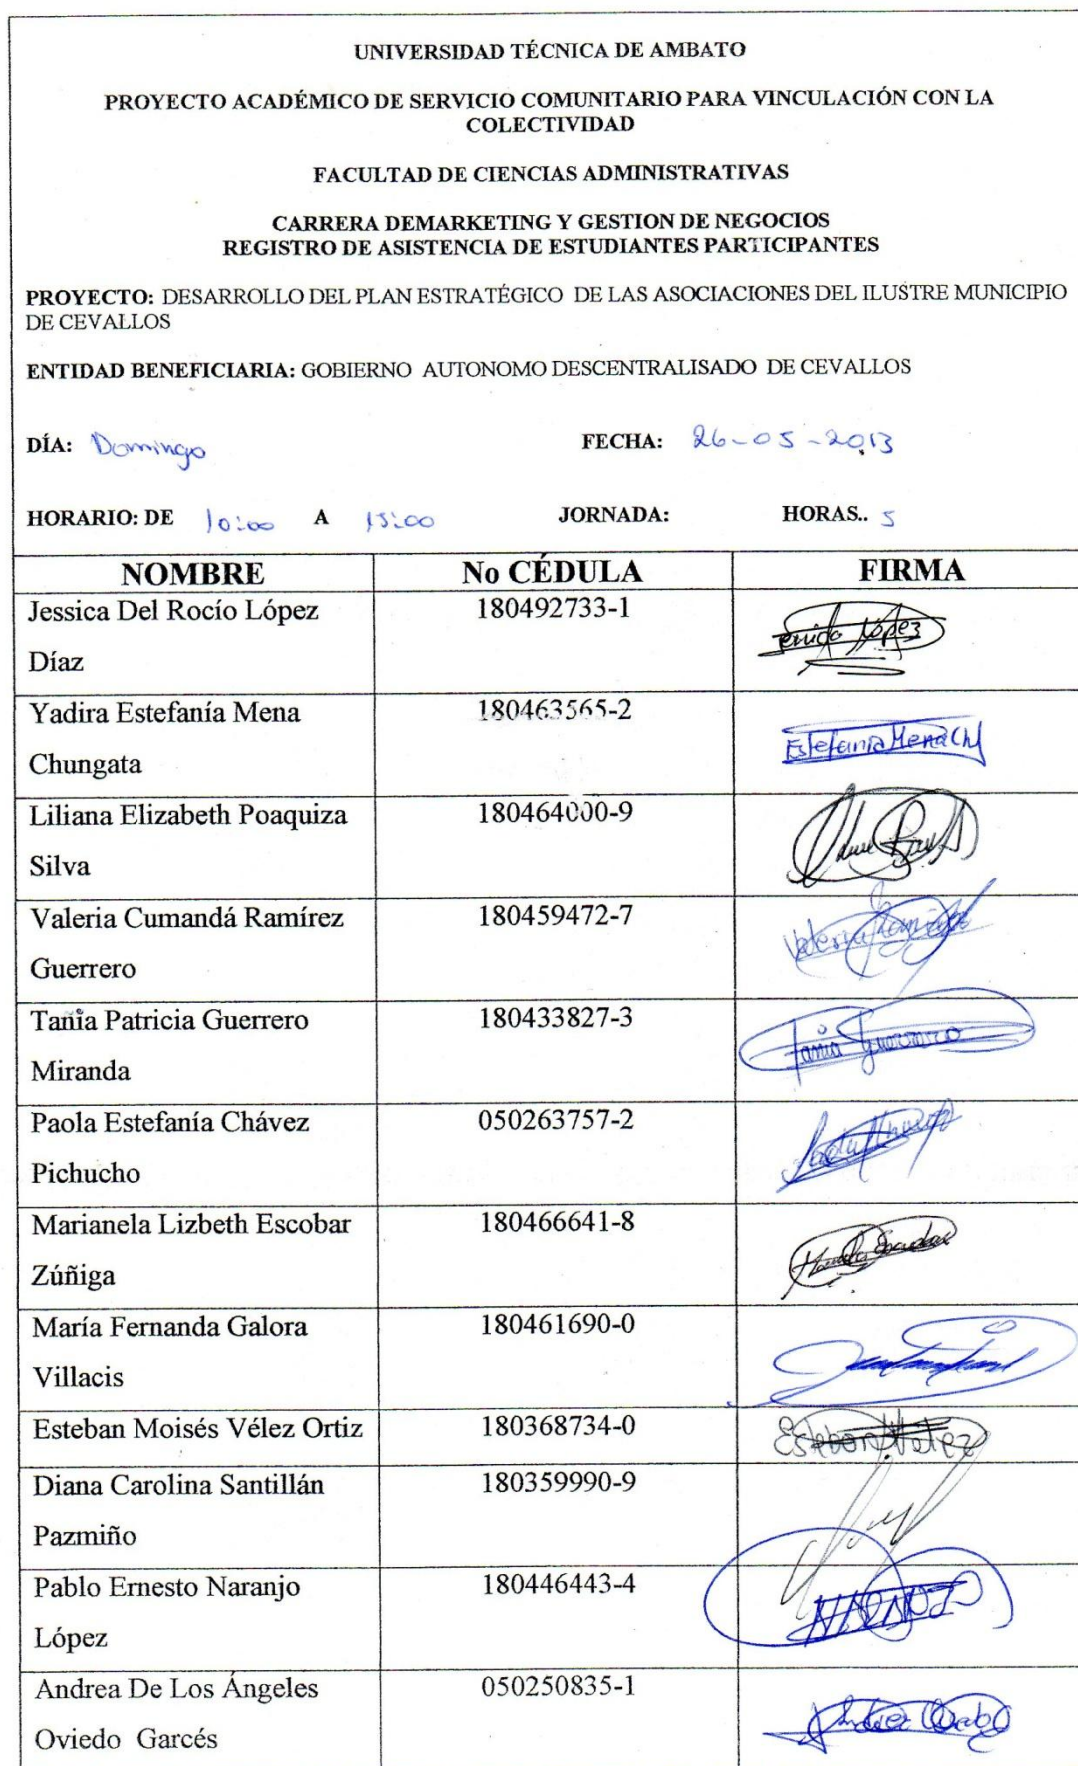 UNIVERSIDAD TÉCNICA DE AMBATO
PROYECTO ACADÉMICO DE SERVICIO COMUNITARIO PARA VINCULACIÓN CON LA
COLECTIVIDAD
FACULTAD DE CIENCIAS ADMINISTRATIVAS
CARRERA DEMARKETING Y GESTION DE NEGOCIOS
REGISTRO DE ASISTENCIA DE ESTUDIANTES PARTICIPANTES
PROYECTO: DESARROLLO DEL PLAN ESTRATÉGICO DE LAS ASOCIACIONES DEL ILUSTRE MUNICIPIO
DE CEVALLOS
ENTIDAD BENEFICIARIA: GOBIERNO AUTONOMO DESCENTRALISADO DE CEVALLOS
DÍA: Domingo FECHA: 26-05-2013
HORARIO: DE 10:00 A 15:00 JORNADA: HORAS.. 5
NOMBRE No CÉDULA FIRMA
Jessica Del Rocío López 180492733-1
Díaz López
Yadira Estefanía Mena 180463565-2
Chungata Estefania Mena Ch
Liliana Elizabeth Poaquiza 180464000-9
Silva
Valeria Cumandá Ramírez 180459472-7
Guerrero Valeria
Tania Patricia Guerrero 180433827-3
Miranda Tania Guerrero
Paola Estefanía Chávez 050263757-2
Pichucho
Marianela Lizbeth Escobar 180466641-8
Zúñiga
María Fernanda Galora 180461690-0
Villacis
Esteban Moisés Vélez Ortiz 180368734-0 Esteban Velez
Diana Carolina Santillán 180359990-9
Pazmiño
Pablo Ernesto Naranjo 180446443-4
López
Andrea De Los Ángeles 050250835-1
Oviedo Garcés